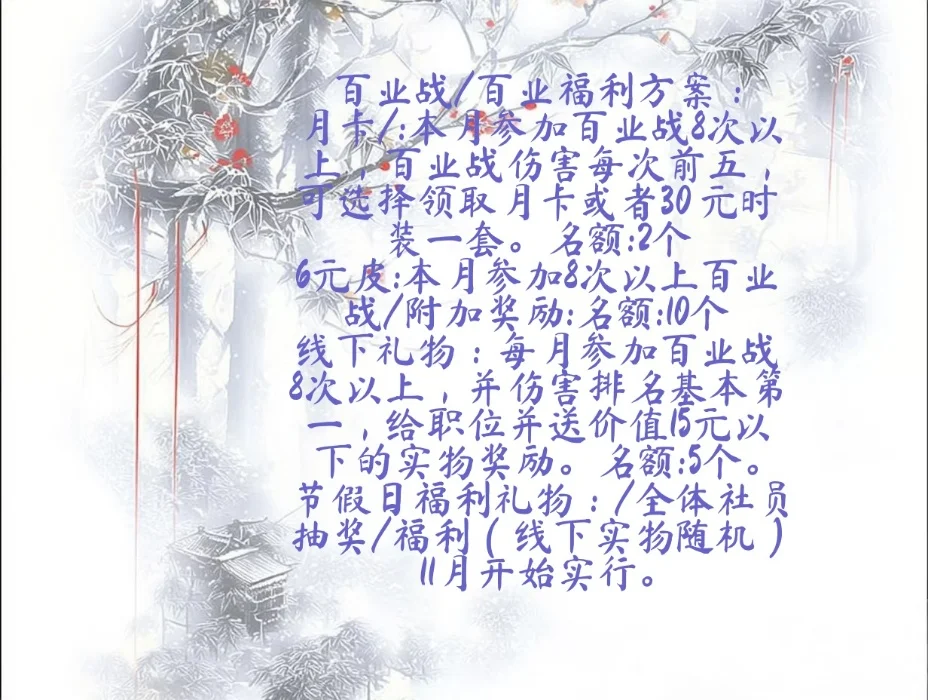 百业战/百业福利方案：
月卡/:本月参加百业战8次以
上，百业战伤害每次前五，
可选择领取月卡或者30元时
装一套。名额:2个
6元皮:本月参加8次以上百业
战/附加奖励:名额:10个
线下礼物：每月参加百业战
8次以上，并伤害排名基本第
一，给职位并送价值15元以
下的实物奖励。名额:5个。
节假日福利礼物：/全体社员
抽奖/福利（线下实物随机）
11月开始实行。